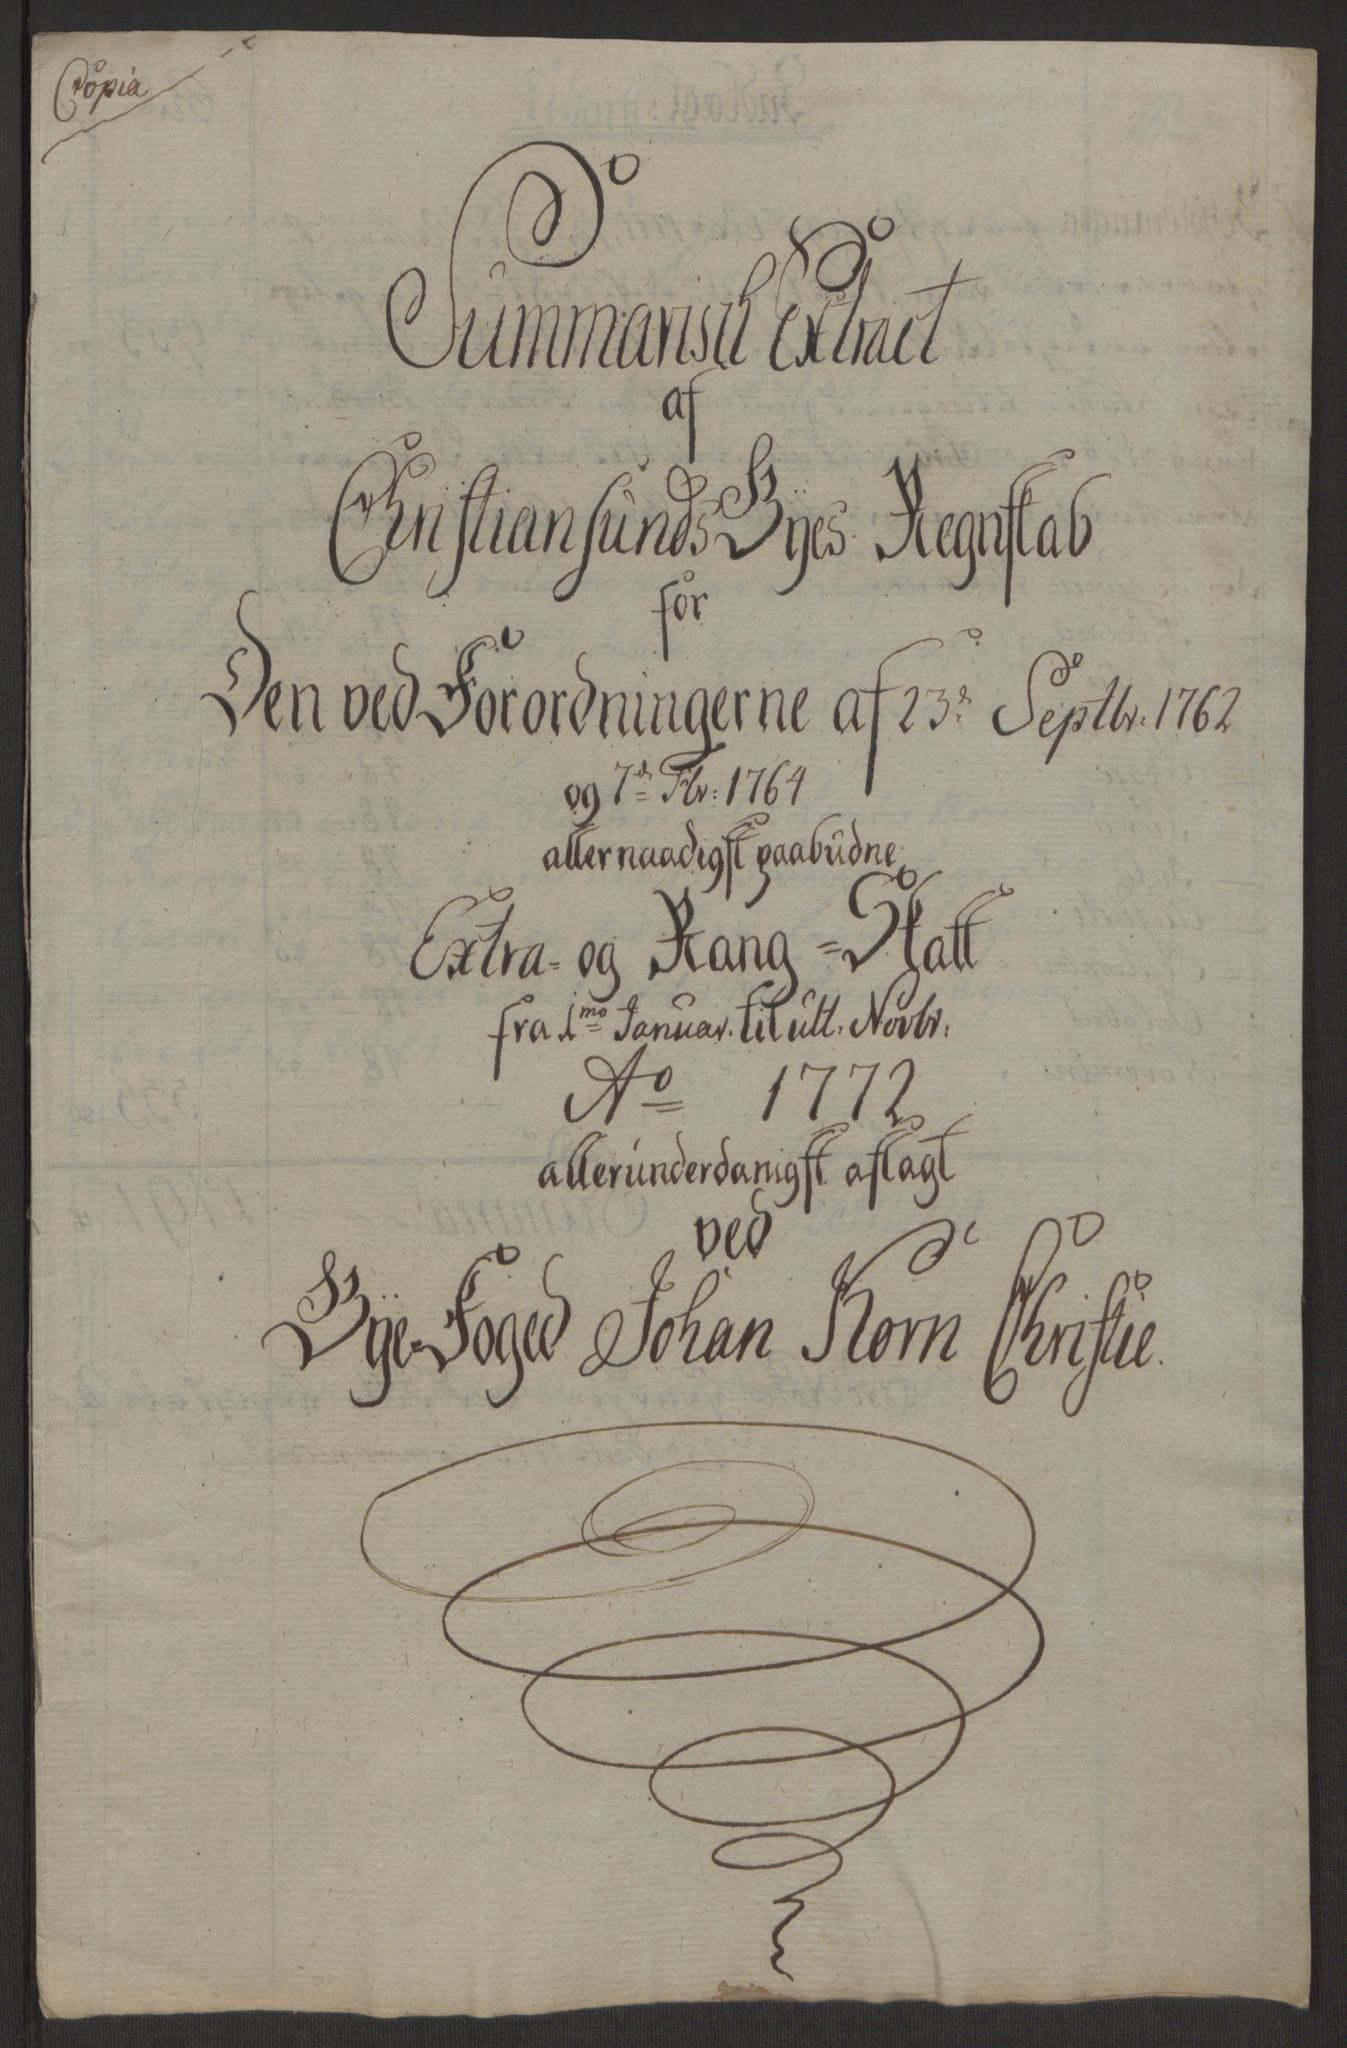 Copia
Summarisch Extract
af
Christiansunds Byes Regnskab
for
Den ved Forordningerne af 23de Septbr: 1762
og 7de Fbr: 1764
allernaadigst paabudne
Extra- og Rang-Skatt
fra 1mo Januar. til ult. Novbr:
Ao 1772
allerunderdanigst aflagt
ved
Bye-Foged Johan Korn Christie.